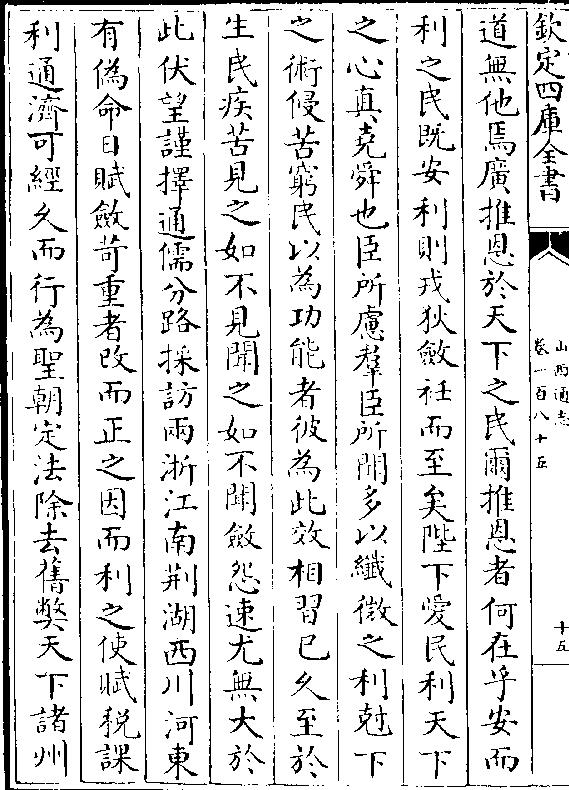 欽定四庫全書
山西通志
卷一百八十五
十五
道無他焉廣推恩於天下之民爾推恩者何在乎安而
利之民既安利則戎狄斂衽而至矣陛下愛民利天下
之心真堯舜也臣所慮羣臣所聞多以纖微之利尅下
之術侵苦窮民以為功能者彼為此效相習已久至於
生民疾苦見之如不見聞之如不聞斂怨速尤無大於
此伏望謹擇通儒分路採訪兩浙江南荆湖西川河東
有偽命日賦斂苛重者改而正之因而利之使賦稅課
利通濟可經久而行為聖朝定法除去舊弊天下諸州